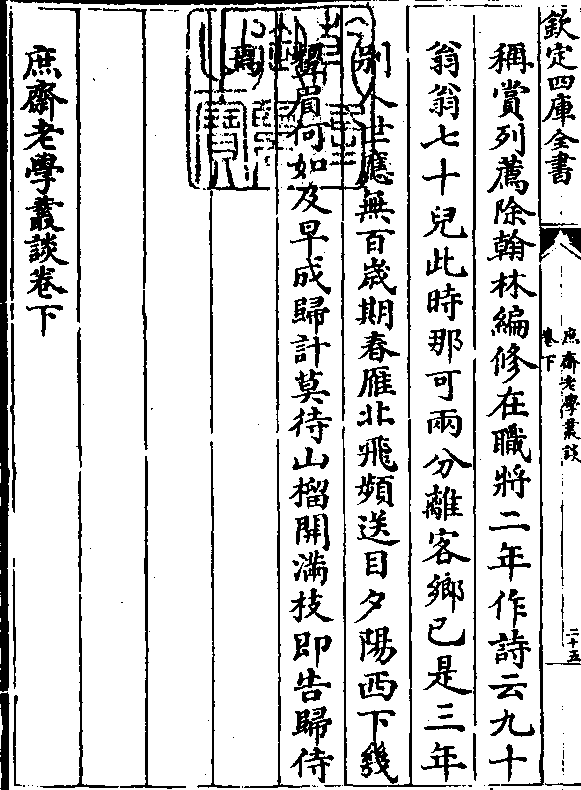 欽定四庫全書
庶齋老學叢談
卷下
二十五
稱賞列薦除翰林編修在職將二年作詩云九十
翁翁七十兒此時那可兩分離客鄉已是三年
別人世應無百歲期春雁北飛頻送目夕陽西下幾
顰眉何如及早成歸計莫待山榴開滿枝即告歸侍
焉
庶齋老學叢談卷下